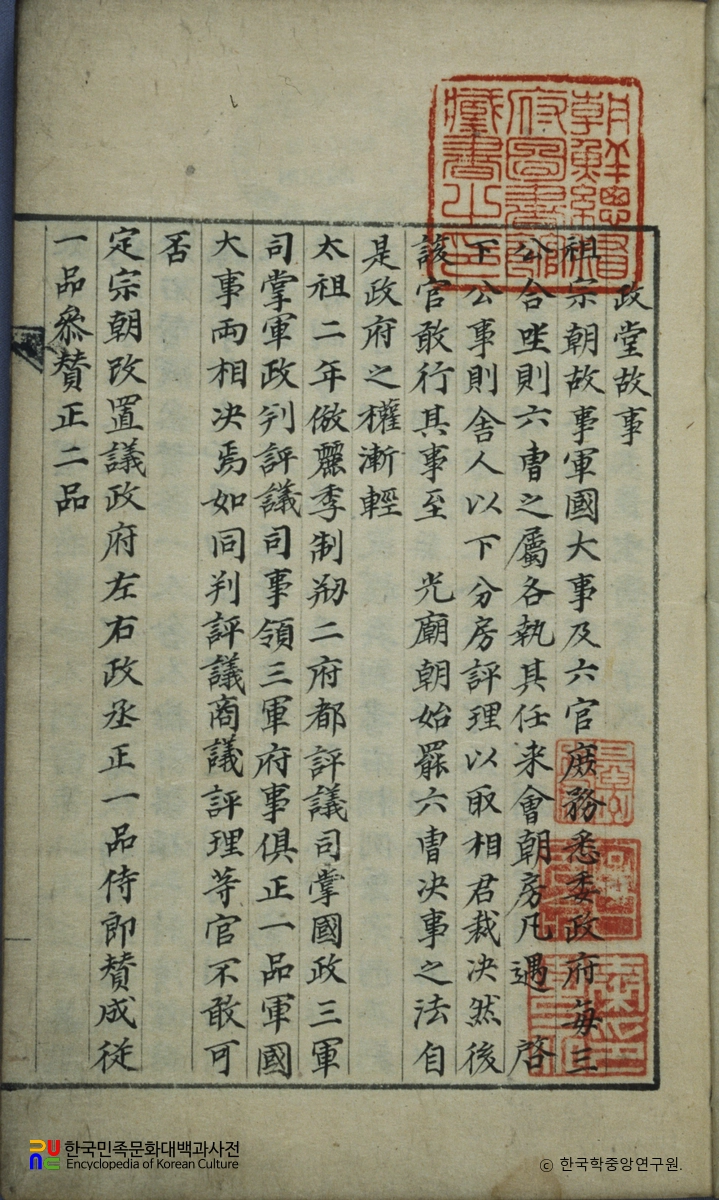 朝鮮總督
府圖書館
藏書之印
政堂故事
祖宗朝故事軍國大事及六官庶務悉委政府每三
公合坐則六曺之屬各執其任来會朝房凡遇 啓
下公事則舍人以下分房評理以取相君裁决然後
該官敢行其事至 光廟朝始罷六曺决事之法自
是政府之權漸輕
太祖二年倣麗季制刱二府都評議司掌國政三軍
司掌軍政判評議司事領三軍府事俱正一品軍國
大事両相决焉如同判評議商議評理等官不敢可
否
定宗朝改置議政府左右政丞正一品侍郎賛成従
一品叅賛正二品
한국민족문화대백과사전
Encyclopedia of Korean Culture
© 한국학중앙연구원.